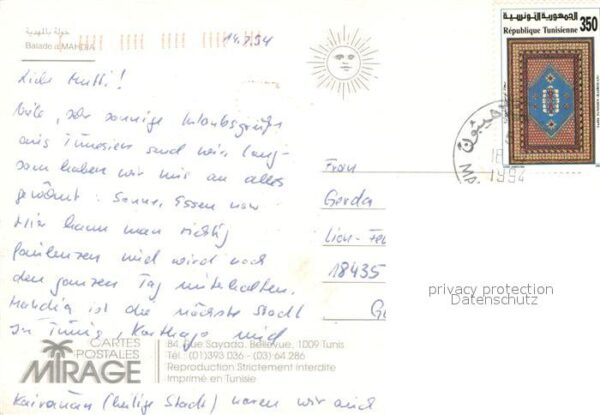 جولة بالمهدية
Balade à MAHDIA
14.7.94
Liebe Mutti!
Viele, sehr sonnige Urlaubsgrüße
aus Tunesien senden wir, lang-
sam haben wir uns an alles
gewöhnt. Sonne, Essen usw.
Hier kann man richtig
faulenzen und wird noch
den ganzen Tag unterhalten.
Mahdia ist die nächste Stadt
In Tunis, Karthago und
Kairouan (heilige Stadt) waren wir auch
CARTES
POSTALES
MIRAGE
84, Rue Sayada, Bellevue, 1009 Tunis
Tél : (01) 393 036 - (03) 64 286
Reproduction Strictement interdite
Imprimé en Tunisie
الجمهورية التونسية
République Tunisienne
350
1994
Frau
Gerda
18435
privacy protection
Datenschutz